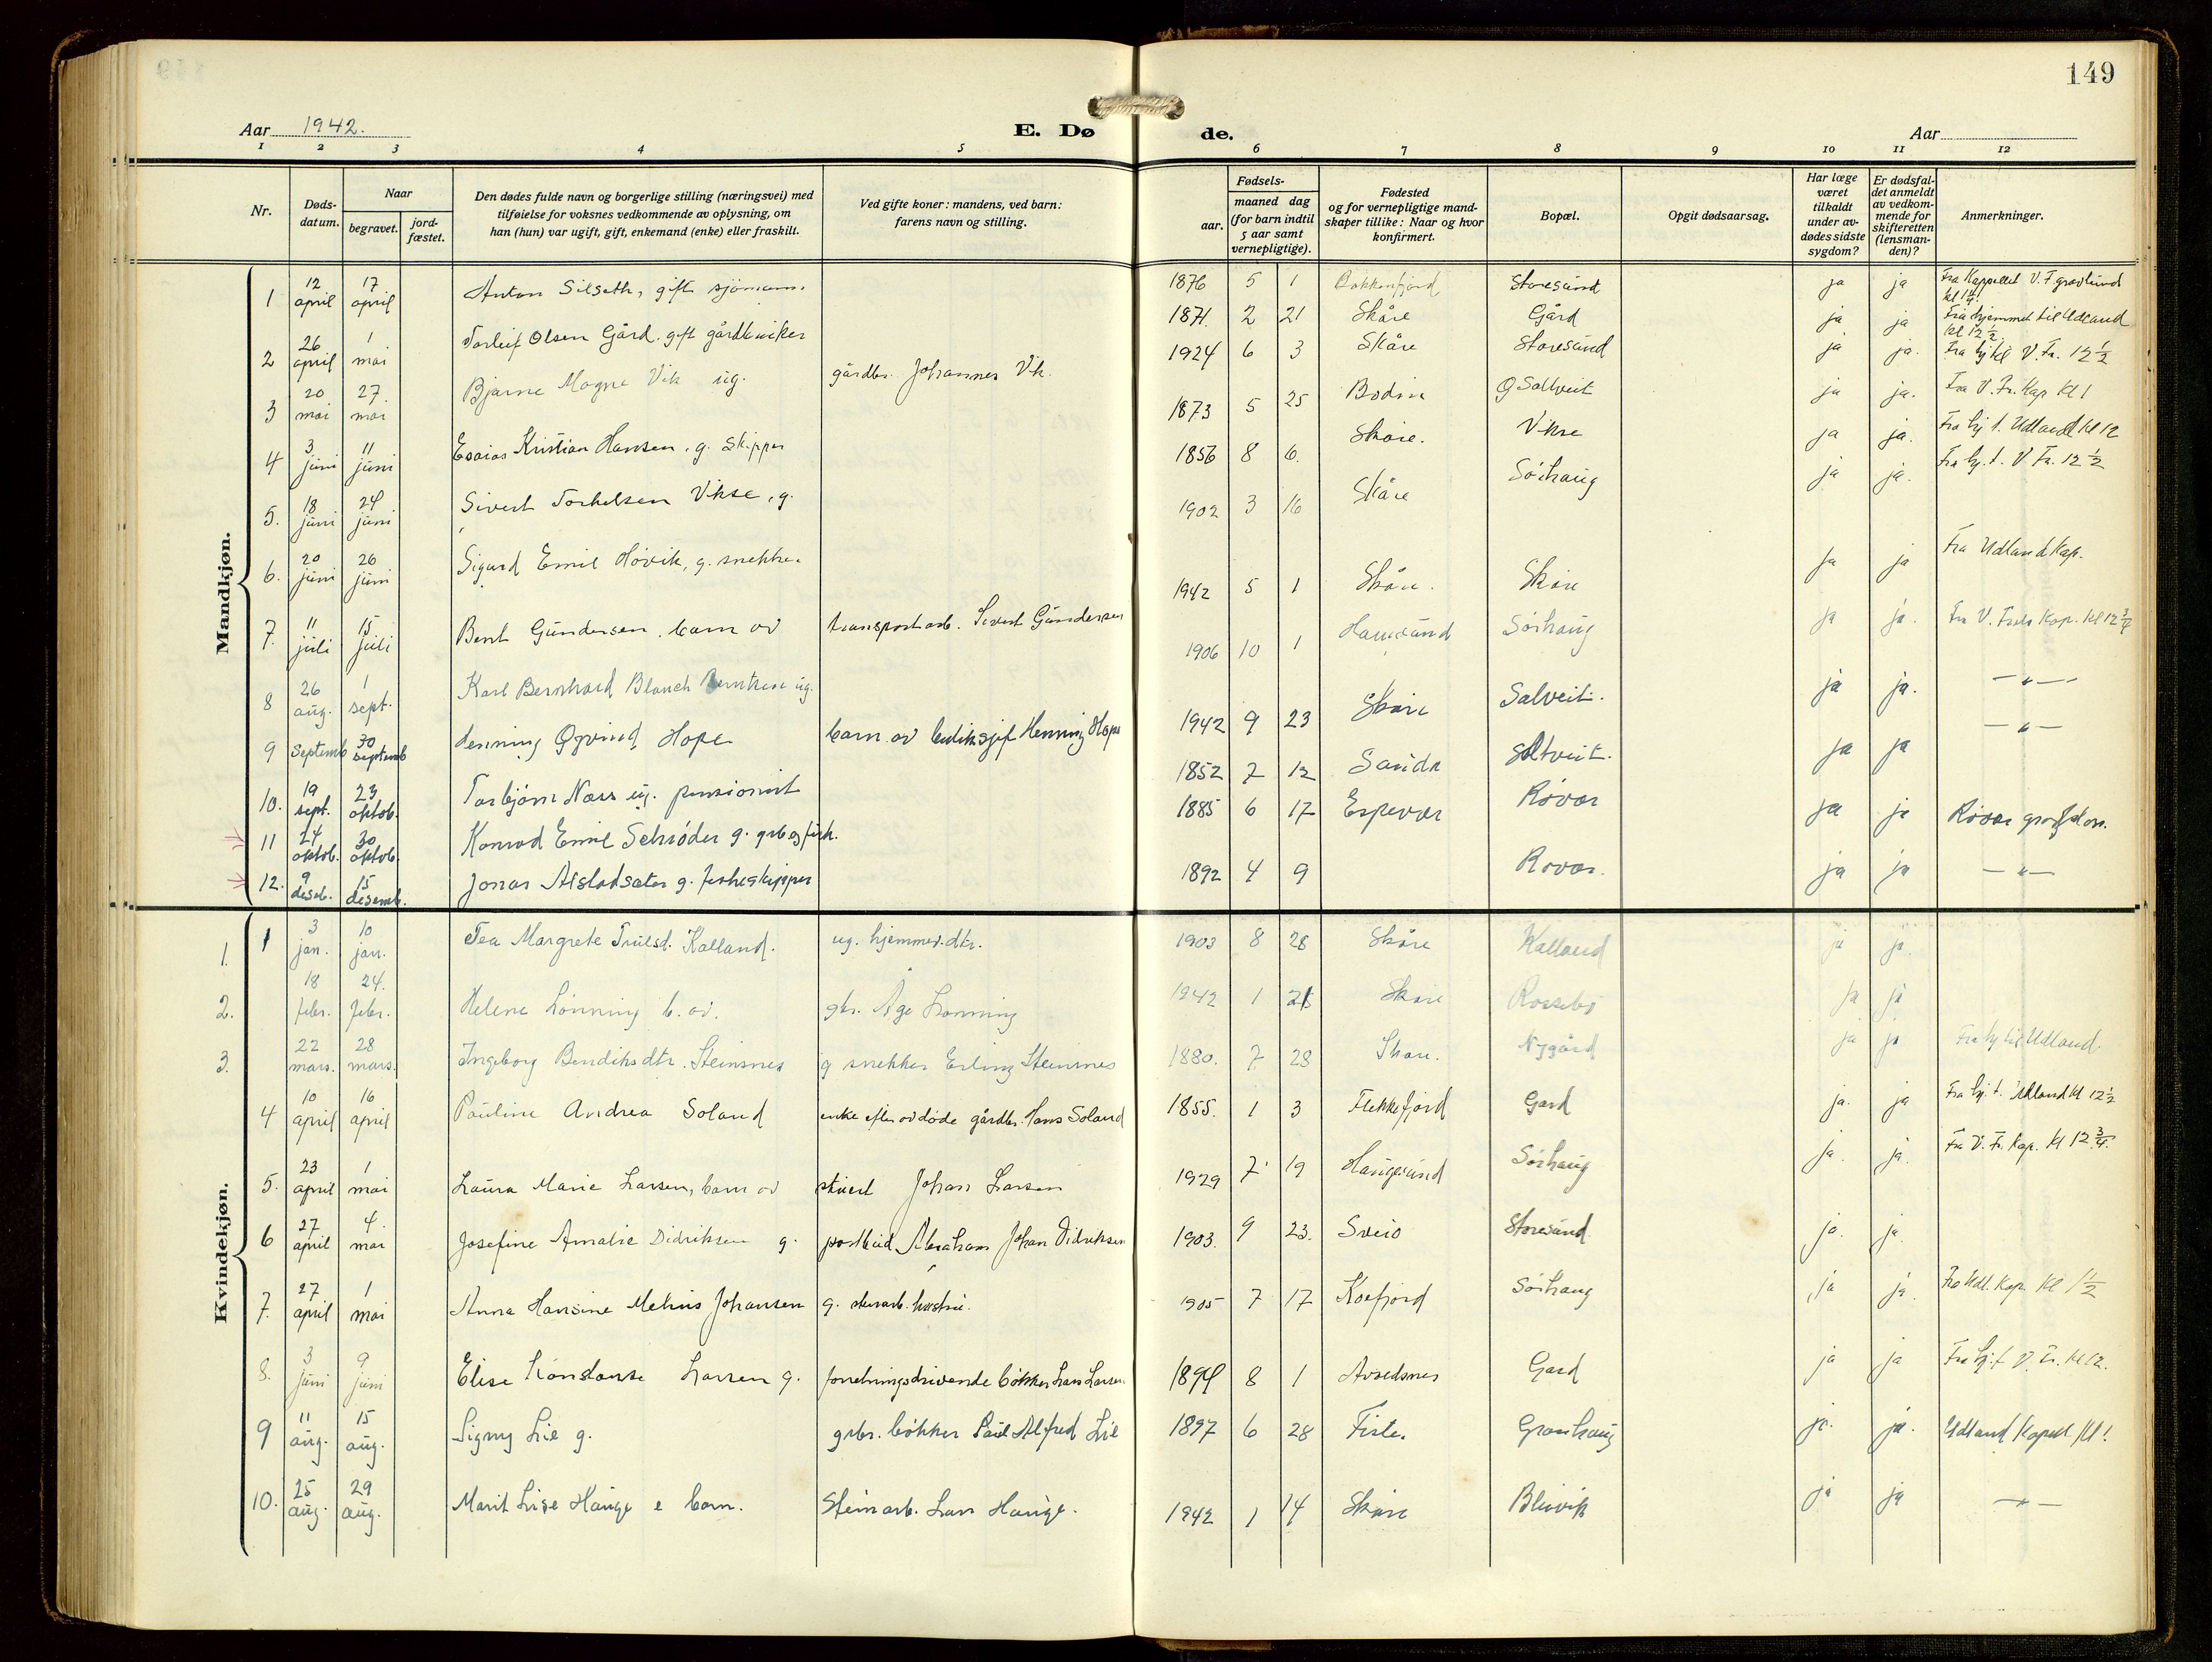 149
Aar 1942.
E. Dø de.
Aar
1 2 3 4 5 6 7 8 9 10 11 12
Nr.
Døds-datum.
Naar
begravet.
jord-fæstet.
Den dødes fulde navn og borgerlige stilling (næringsvei) med
tilføielse for voksnes vedkommende av oplysning, om
han (hun) var ugift, gift, enkemand (enke) eller fraskilt.
Ved gifte koner: mandens, ved barn:
farens navn og stilling.
Fødsels-
aar.
maaned dag
(for barn indtil
5 aar samt
vernepligtige).
Fødested
og for vernepligtige mand-
skaper tillike: Naar og hvor
konfirmert.
Bopæl.
Opgit dødsaarsag.
Har læge
været
tilkaldt
under av-
dødes sidste
sygdom?
Er dødsfal-
det anmeldt
av vedkom-
mende for
skifteretten
(lensman-
den)?
Anmerkninger.
Mandkjøn.
1 12 april 17 april Anton Silseth, gift sjömann. 1876 5 1 Bakkenfjord Storesund ja ja Fra Kappellet V. F gravlund kl 1 1/4.
2 26 april 1 mai Torleif Olsen Gård. gift gårdbruker 1871. 2 21 Skåre Gård ja ja Fra hjemmet til Udland kl 12 1/2.
3 20 mai 27. mai Bjarne Magne Vik ug. gårdbr. Johannes Vik. 1924 6 3 Skåre Storesund ja ja. Fra hj til V. Fr. 12 1/2
4 3 juni 11 juni Esaias Kristian Hansen. g. skipper 1873 5 25 Bodin Ø Saltveit ja ja. Fra V. Fr. Kap Kl 1
5. 18 juni 24 juni Sivert Torkelsen Vikse, g. 1856 8 6. Skåre. Vikse ja ja. Fra hj t. Udland Kl 12
6. 20 juni 26 juni Sigurd Emil Hövik, g. snekker 1902 3 16 Skåre Sörhaug ja ja. Fra hj. t. V Fr. 12 1/2
7. 11 juli 15 juli Bent Gundersen. barn av transportarb. Sivert Gundersen 1942 5 1 Skåre. Skåre ja ja Fra Udland Kap.
8 26 aug. 1 sept. Karl Bernhard Blanch Berntsen ug. 1906 10 1 Haugesund Sörhaug ja ja. Fra V. Frels Kap. Kl 12 3/4
9 Septemb 30 septemb Henning Øyvind Hope barn av butiksjef Henning Hope 1942 9 23 Skåre Salveit. ja ja. — " —
10. 19 sept. 23 oktob. Torbjörn Næss ug. pensionist 1852 7 12 Sauda Saltveit. ja ja — " —
11 24 oktob. 30 oktob. Konrad Emil Schröder g. grb og fisk. 1885 6 17 Espevær Rövær ja ja Rövær gravplass.
12. 9 desb. 15 desemb. Jonas Alsladsæter g. fiskeskipper 1892 4 9 Rövær. ja ja — " —
Kvindekjøn.
1. 1 3 jan. 10 jan. Tea Margrete Trulsd. Kalland. ug. hjemmev. dtr. 1903 8 28 Skåre Kalland ja ja.
2. 18 febr. 24. febr. Helene Lönning b. av. gbr. Åge Lönning 1942 1 21 Skåre Rossebö ja ja
3. 22 mars. 28 mars. Ingeborg Bendiksdtr. Steinsnes g snekker Erling Steinsnes 1880. 7 28 Skåre. Nygård ja ja Fra hj til Udland.
4 10 april 16 april Pauline Andrea Soland enke efter avdöde gårdbr. Hans Soland 1855. 1 3 Flekkefjord Gard ja. ja Fra hj. t. Udland kl 12 1/2
5. 23 april 1 mai Laura Marie Larsen, barn av stuert Johan Larsen 1929 7 19 Haugesund Sörhaug ja. ja. Fra V. Fr. Kap. Kl 12 3/4.
6 27 april 4. mai Josefine Amalie Didriksen g. postbud Abraham Johan Didriksen 1903. 9 23. Sveio Storesund. ja. ja.
7. 27 april 1 mai Anna Hansine Melius Johansen g. stenarb. hustru. 1905 7 17 Kofjord Sörhaug ja ja. Fra Udl. Kap. Kl 1 1/2
8. 3 juni 9 juni Elise Konstanse Larsen g. forretningsdrivende bökker Lars Larsen. 1894 8 1 Avaldsnes Gard ja ja Fra hj. t V. Fr. kl 12.
9 11 aug. 15 aug. Signy Lie g. grbr. bökker Paul Alfred Lie 1897 6 28 Fister Granhaug ja. ja. Udland Kapell Kl 1
10. 25 aug. 29 aug. Marit Lise Hauge e barn. Steinarb. Lars Hauge. 1942 1 14 Skåre Bleivik ja ja — " —